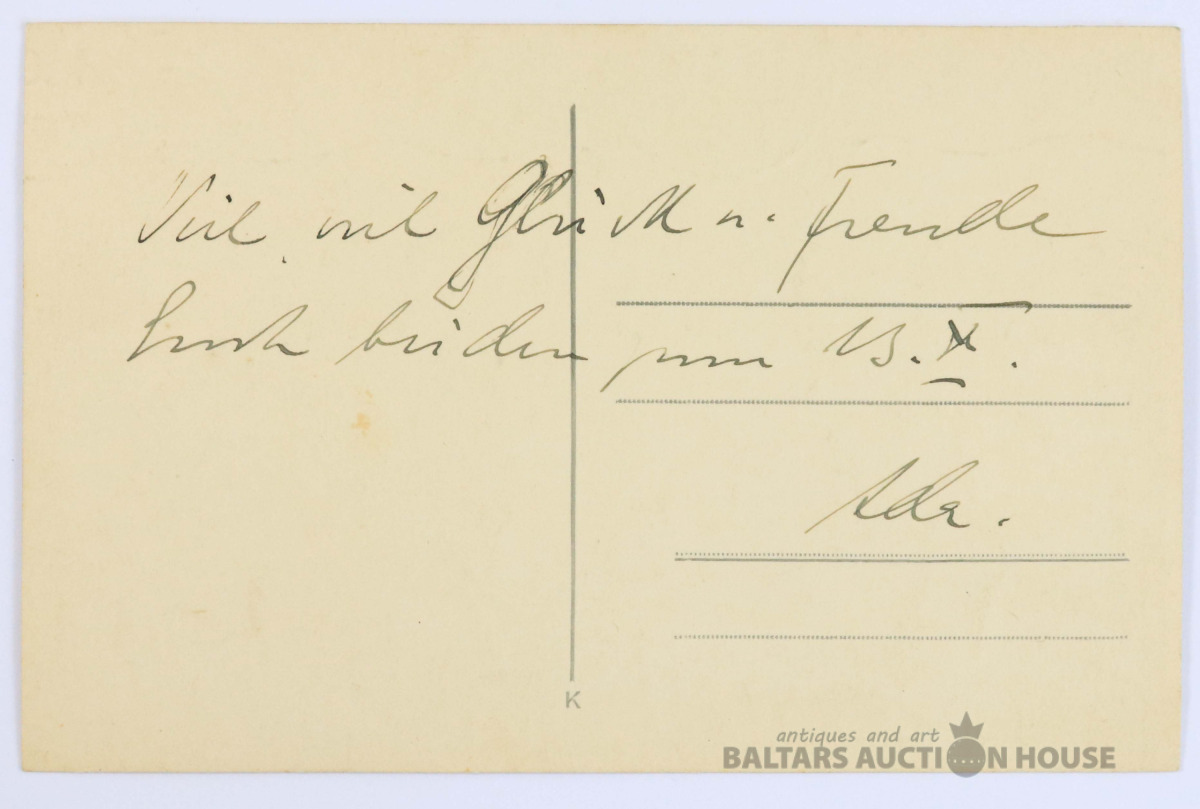 Viel, viel Glück u. Freude
Euch beiden zum 13. X.
Ada.
K
antiques and art
BALTARS AUCTION HOUSE